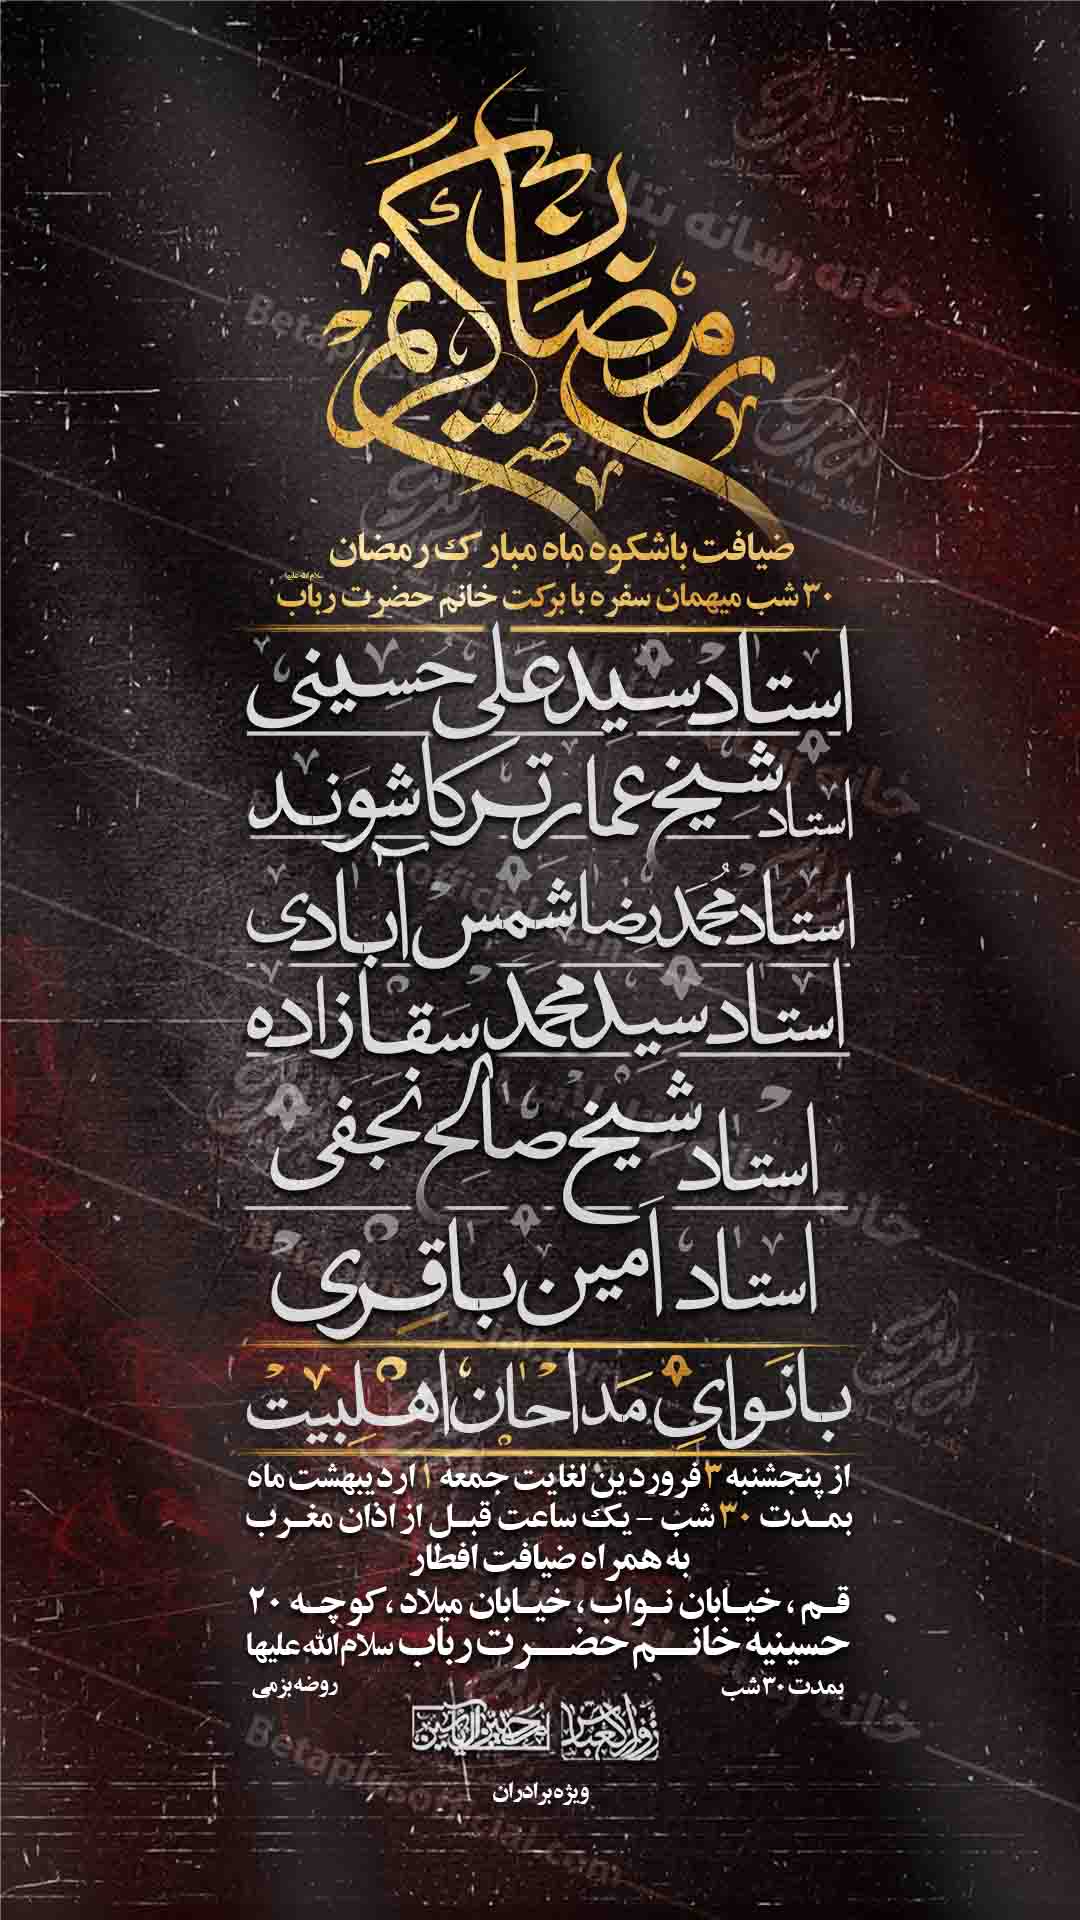 رمضان کریم
ضیافت باشکوه ماه مبارک رمضان
۳۰ شب میهمان سفره با برکت خانم حضرت رباب سلام الله علیها
استاد سید علی حسینی
استاد شیخ عمار ترکاشوند
استاد محمدرضا شمس آبادی
استاد سید محمد سقازاده
استاد شیخ صالح نجفی
استاد امین باقری
بانوای مداحان اهلبیت
از پنجشنبه ۳ فروردین لغایت جمعه ۱ اردیبهشت ماه
بمدت ۳۰ شب - یک ساعت قبل از اذان مغرب
به همراه ضیافت افطار
قم ، خیابان نواب ، خیابان میلاد ، کوچه ۲۰
حسینیه خانم حضرت رباب سلام الله علیها
بمدت ۳۰ شب روضه بزمی
ویژه برادران
خانه رسانه بتا
Betaplusofficial.com